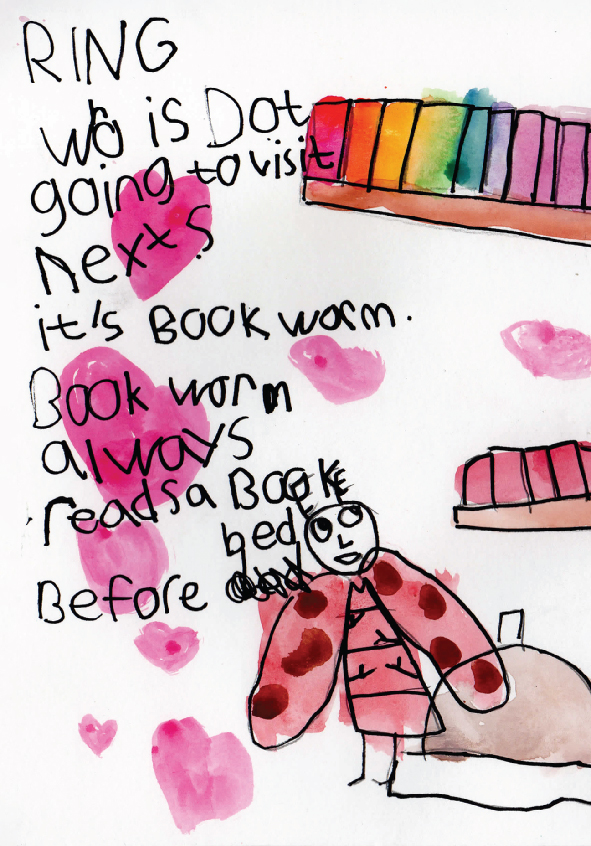 RING
who is Dot
going to visit
next?
it's BOOK worm.
Book worm
always
reads a BOOK
bed
Before